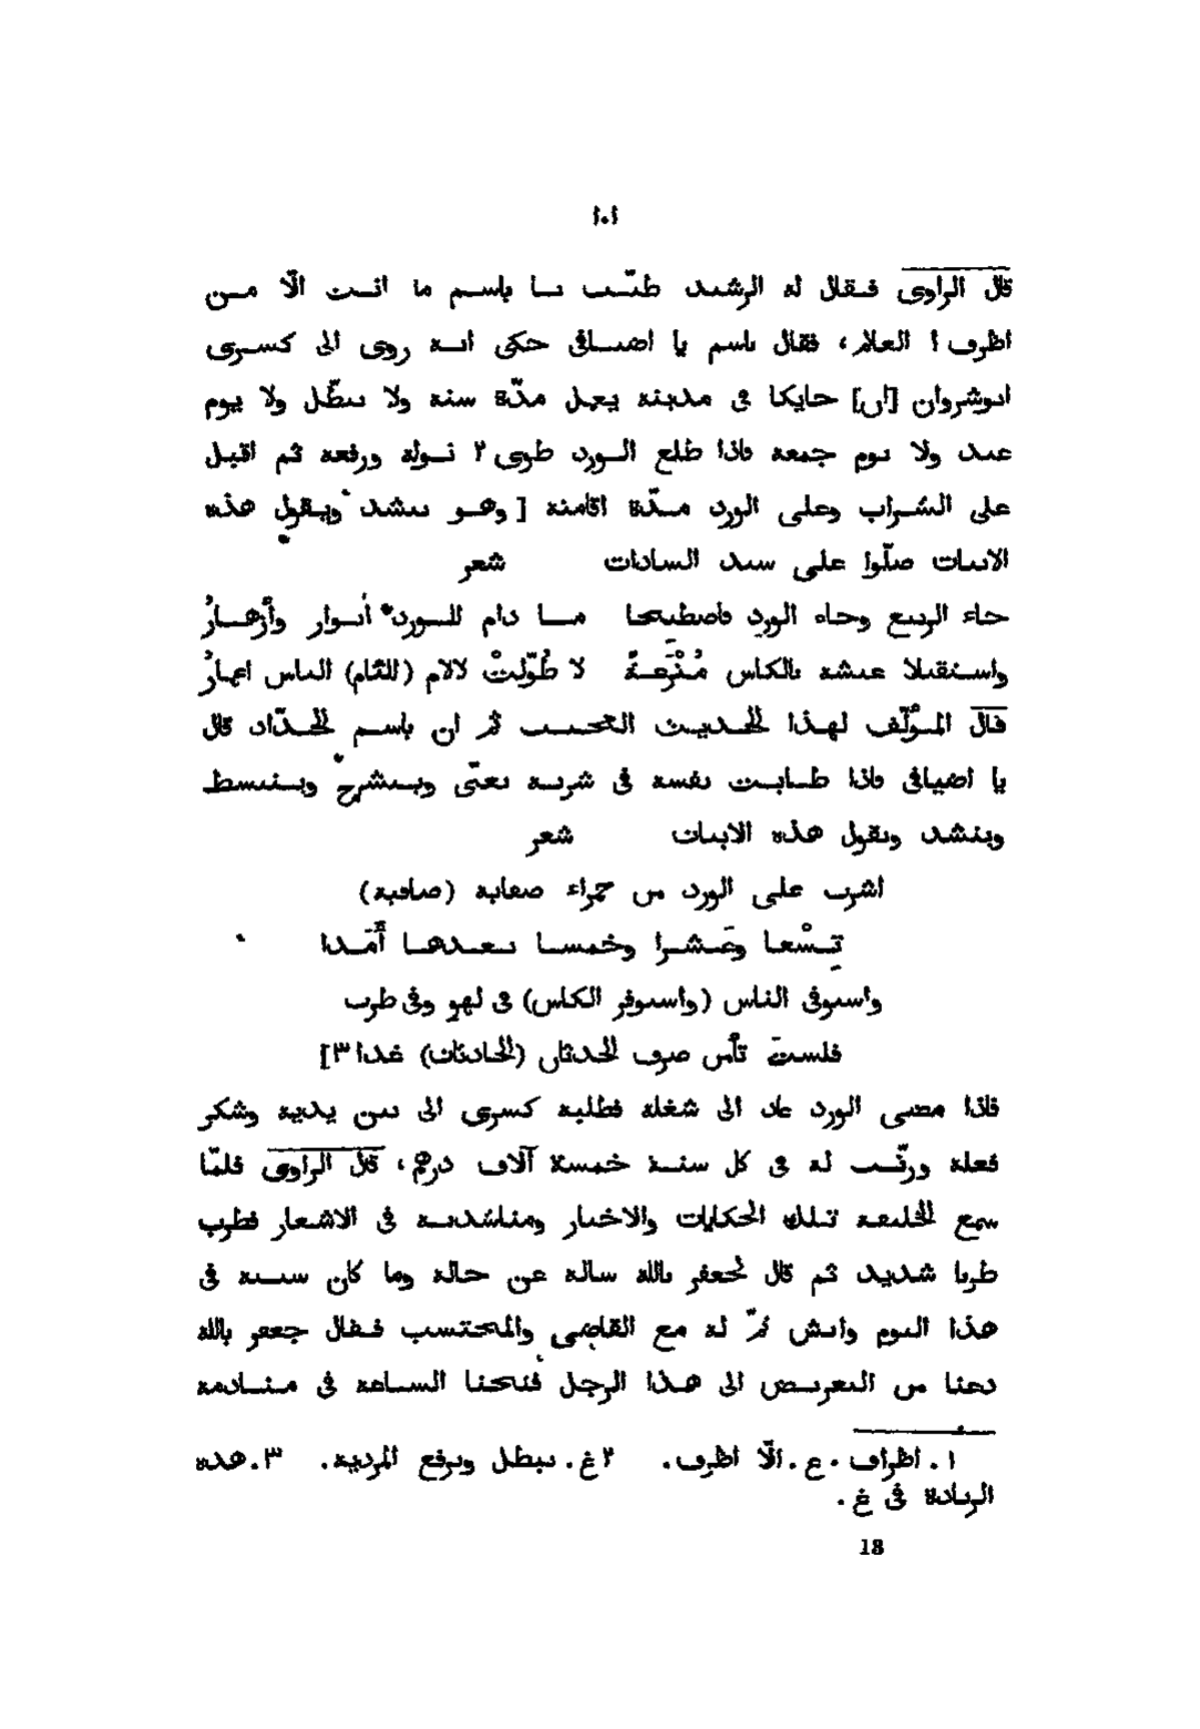 ١٠١
قال الراوى فقال له الرشيد طيّب يا باسم ما انت الّا من
اظرف ١ العلام، فقال باسم يا اضيافى حكى انه روى الى كسرى
انوشروان [ان] حايكا فى مدينة يعمل مدّة سنة ولا يبطّل ولا يوم
عيد ولا يوم جمعة فاذا طلع الورد طوى ٢ نوله ورفعه ثم اقبل
على الشراب وعلى الورد مدّة اقامته [وهو ينشد ويقول هذه
الابيات صلّوا على سيد السادات شعر
جاء الربيع وجاه الورد فاصطبحا ما دام للورد أنوار وأزهارُ
واستقبلا عيشه بالكاس مُتْرَعةً لا طُوّلتْ لالام (للثام) الناس اعمارُ
قال المؤلّف لهذا الحديث العجيب ثم ان باسم الحدّاد قال
يا اضيافى فاذا طابت نفسه فى شربه يغنّى وينشرح وينبسط
وينشد ويقول هذه الابيات شعر
اشرب على الورد من حمراء صفايه (صافية)
تِسْعا وعَشرا وخمسا بعدها أَمَدا
واستوفى الناس (واستوفر الكاس) فى لهوٍ وفى طرب
فلستَ تأمن صرف الحدثان (الحادثات) غدا ٣]
فاذا مضى الورد عاد الى شغله فطلبه كسرى الى بين يديه وشكر
فعله ورتّب له فى كل سنة خمسة آلاف درهم، قال الراوى فلمّا
سمع الخليفة تلك الحكايات والاخبار ومناشدته فى الاشعار فطرب
طربا شديد ثم قال لجعفر بالله ساله عن حاله وما كان سببه فى
هذا اليوم وايش تمّ له مع القاضى والمحتسب فقال جعفر بالله
دعنا من التعريض الى هذا الرجل فنحنا الساعة فى منادمة
١. اظراف. ع. الّا اظرف. ٢ غ. يبطل ويرفع المردية. ٣. هذه
الزيادة فى غ.
18